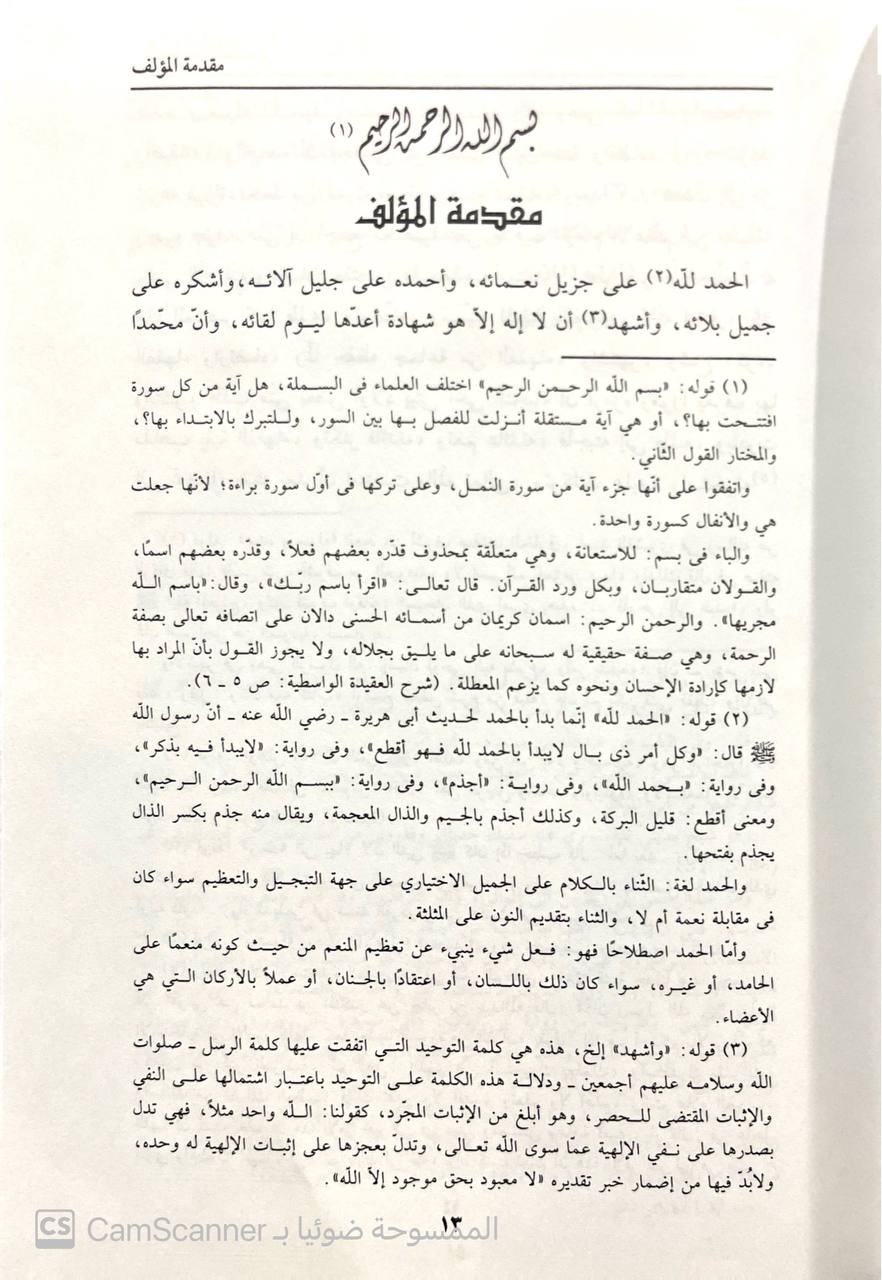 مقدمة المؤلف
بسم الله الرحمن الرحيم (١)
مقدمة المؤلف
الحمد للّه(٢) على جزيل نعمائه، وأحمده على جليل آلائه، وأشكره على
جميل بلائه، وأشهد(٣) أن لا إله إلاّ هو شهادة أعدّها ليوم لقائه، وأنّ محّمدًا
(١) قوله: «بسم اللّه الرحمن الرحيم» اختلف العلماء فى البسملة، هل آية من كل سورة
افتتحت بها؟، أو هي آية مستقلة أنزلت للفصل بها بين السور، وللتبرك بالابتداء بها؟،
والمختار القول الثّاني.
واتفقوا على أنّها جزء آية من سورة النمل، وعلى تركها فى أوّل سورة براءة؛ لأنّها جعلت
هي والأنفال كسورة واحدة.
والباء فى بسم: للاستعانة، وهي متعلّقة بمحذوف قدّره بعضهم فعلاً، وقدّره بعضهم اسمًا،
والقولان متقاربان، وبكل ورد القرآن. قال تعالى: «اقرأ باسم ربّك»، وقال: «باسم اللّه
مجريها». والرحمن الرحيم: اسمان كريمان من أسمائه الحسنى دالان على اتصافه تعالى بصفة
الرحمة، وهي صفة حقيقية له سبحانه على ما يليق بجلاله، ولا يجوز القول بأنّ المراد بها
لازمها كإرادة الإحسان ونحوه كما يزعم المعطلة. (شرح العقيدة الواسطية: ص ٥ ـ ٦).
(٢) قوله: «الحمد للّه» إنّما بدأ بالحمد لحديث أبى هريرة ـ رضي اللّه عنه ـ أنّ رسول اللّه
ﷺ قال: «وكل أمر ذى بال لايبدأ بالحمد للّه فهو أقطع»، وفى رواية: «لايبدأ فيه بذكر»،
وفى رواية: «بحمد اللّه»، وفى رواية: «أجذم»، وفى رواية: «ببسم اللّه الرحمن الرحيم»،
ومعنى أقطع: قليل البركة، وكذلك أجذم بالجيم والذال المعجمة، ويقال منه جذم بكسر الذال
يجذم بفتحها.
والحمد لغة: الثّناء بالكلام على الجميل الاختياري على جهة التبجيل والتعظيم سواء كان
فى مقابلة نعمة أم لا، والثناء بتقديم النون على المثلثة.
وأمّا الحمد اصطلاحًا فهو: فعل شيء ينبيء عن تعظيم المنعم من حيث كونه منعمًا على
الحامد، أو غيره، سواء كان ذلك باللسان، أو اعتقادًا بالجنان، أو عملاً بالأركان التي هي
الأعضاء.
(٣) قوله: «وأشهد» إلخ، هذه هي كلمة التوحيد التي اتفقت عليها كلمة الرسل ـ صلوات
اللّه وسلامه عليهم أجمعين ـ ودلالة هذه الكلمة على التوحيد باعتبار اشتمالها على النفي
والإثبات المقتضى للحصر، وهو أبلغ من الإثبات المجّرد، كقولنا: اللّه واحد مثلاً، فهي تدل
بصدرها على نفي الإلهية عمّا سوى اللّه تعالى، وتدلّ بعجزها على إثبات الإلهية له وحده،
ولابُدّ فيها من إضمار خبر تقديره «لا معبود بحق موجود إلاّ اللّه».
١٣
CS الممسوحة ضوئيا بـ CamScanner